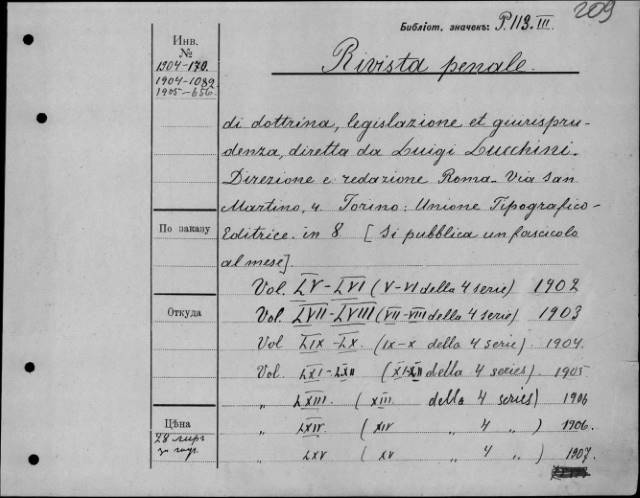 209
Библіот. значекъ: P.113.III.
Инв.
№
1904-170.
1904-1082
1905-656.
Rivista penale.
di dottrina, legislazione et giurispru-
denza, diretta da Luigi Lucchini.
Direzione e redazione Roma. Via San
Martino, 4. Torino: Unione Tipografico-
По заказу
Editrice. in 8 [Si pubblica un fascicolo
al mese].
Vol. LV-LVI (V-VI della 4 serie) 1902
Откуда
Vol. LVII-LVIII (VII-VIII della 4 serie) 1903
Vol LIX-LX. (IX-X della 4 serie). 1904.
Vol. LXI-LXII (XI-XII della 4 series). 1905
„ LXIII. (XIII. della 4 series) 1906
Цѣна
„ LXIV. (XIV „ 4 „) 1906.
28 лиръ
за годъ.
„ LXV (XV „ 4 „) 1907.